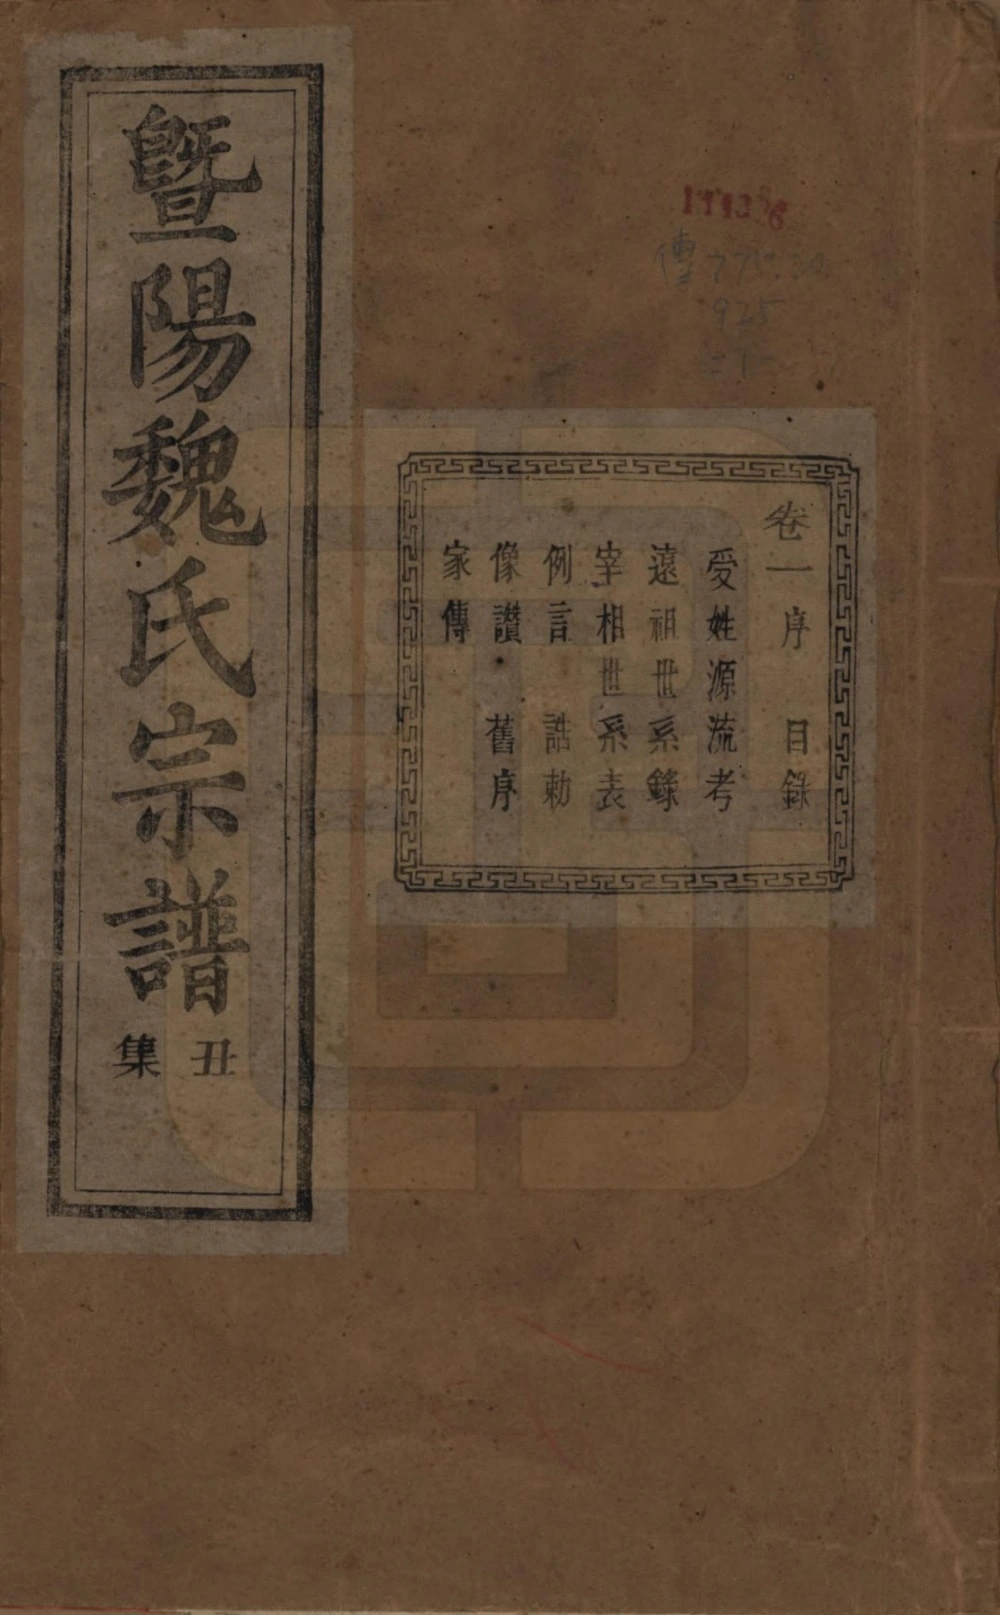 暨陽魏氏宗譜
丑集
卷一序 目錄
受姓源流考
遠祖世系錄
宰相世系表
例言 誥勅
像讃 舊序
家傳
925